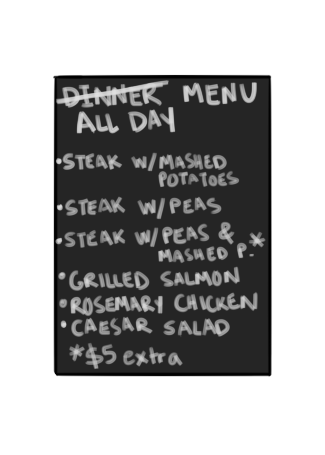 DINNER MENU
ALL DAY
•STEAK W/MASHED
POTATOES
•STEAK W/PEAS
•STEAK W/PEAS &
MASHED P.*
•GRILLED SALMON
•ROSEMARY CHICKEN
•CAESAR SALAD
*$5 extra